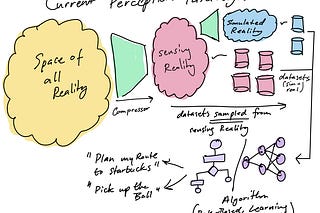 Current Perception
Space of
all
Reality
Compressor
sensing
Reality
Simulated
Reality
datasets
(sim +
real)
datasets sampled from
sensing Reality
"Plan my Route
to starbucks"
"Pick up the
Ball"
Algorithm
Learning